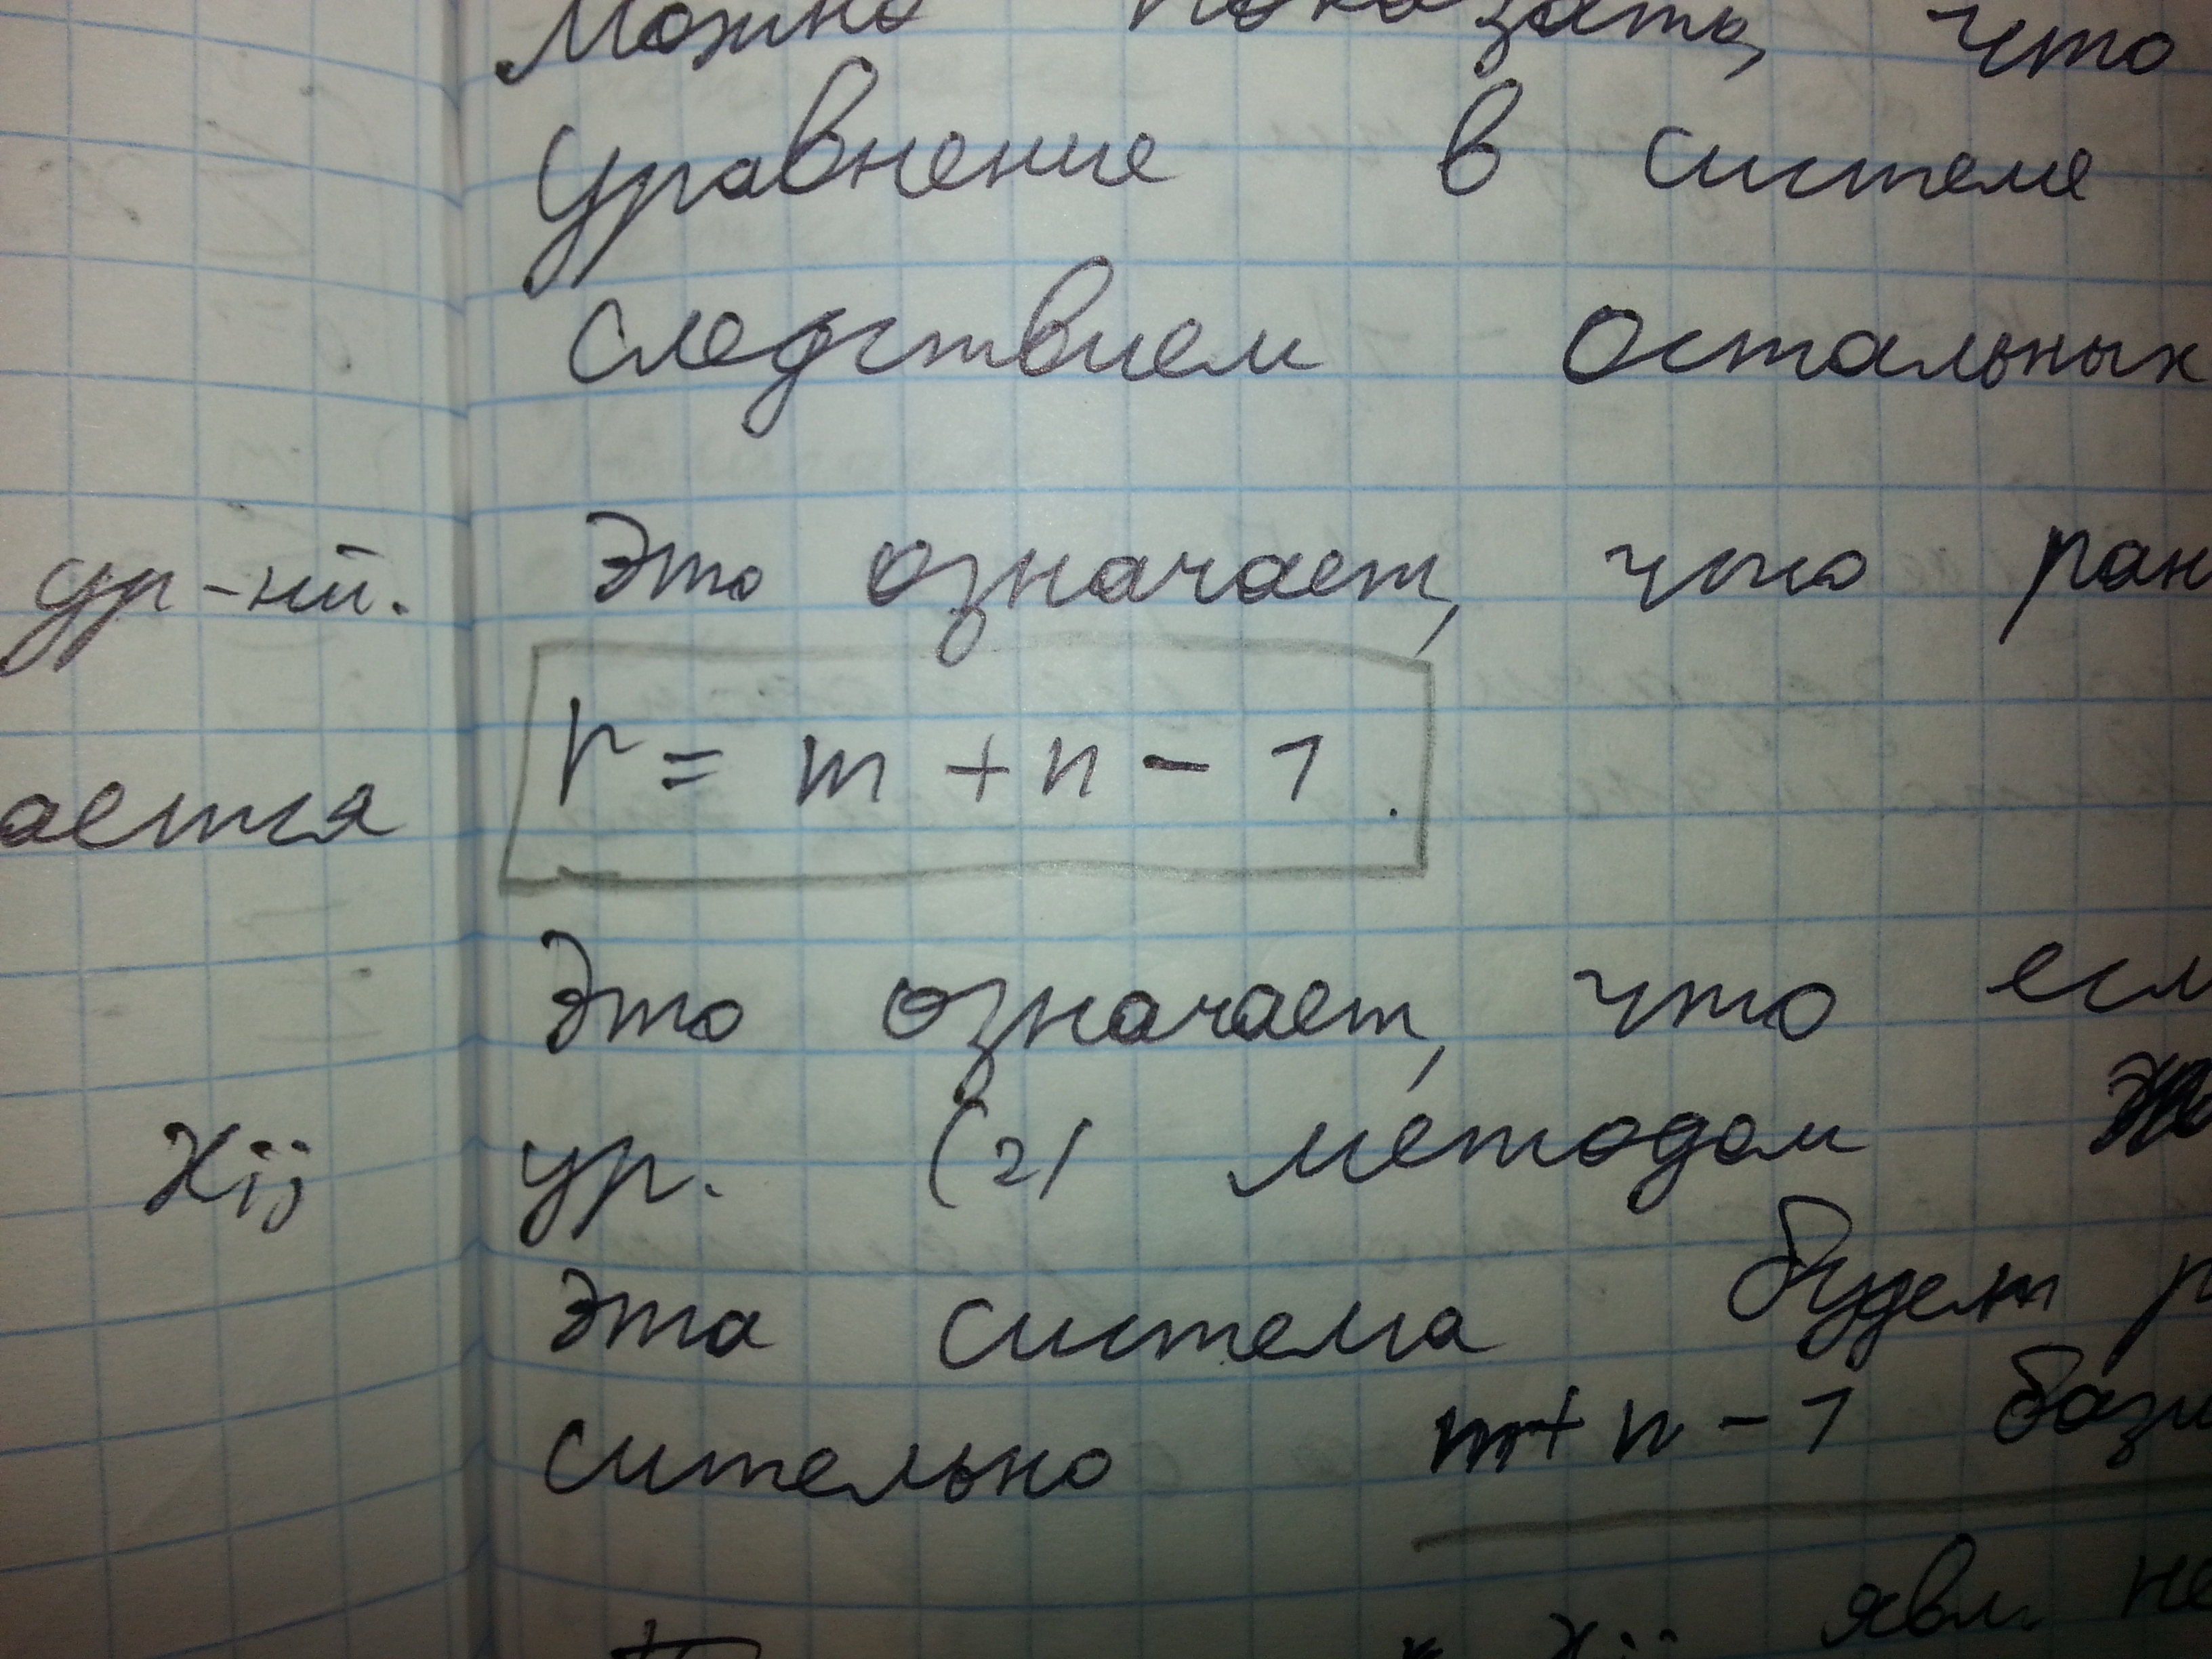 Можно показать, что
уравнение в системе
следствием остальных
ур-ний.
Это означает, что ран
r = m + n - 1.
ается
Это означает, что есл
xij
ур. (2) методом
эта система будет р
сительно m+n-1 бази
xij явл. не